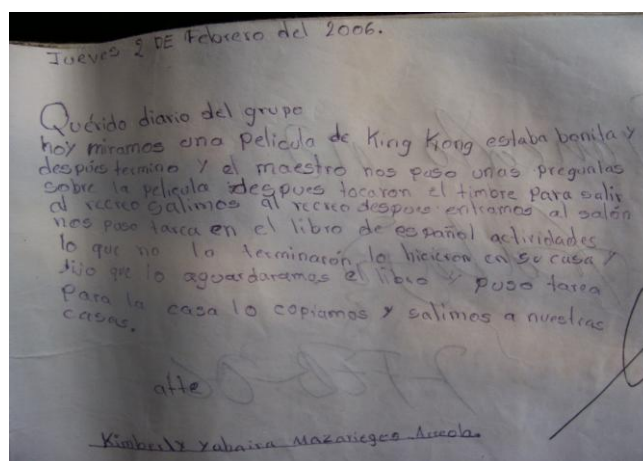 Jueves 2 DE Febrero del 2006.
Querido diario del grupo
hoy miramos una Pelicula de King Kong estaba bonita y
despues termino y el maestro nos puso unas preguntas
sobre la pelicula despues tocaron el timbre para salir
al recreo salimos al recreo despues entramos al salón
nos puso tarea en el libro de español actividades
lo que no lo terminarón lo hicieron en su casa y
dijo que lo aguardaramos el libro y puso tarea
Para la casa lo copiamos y salimos a nuestras
casas.
atte
Kimberly Yahaira Mazariegos Arreola.